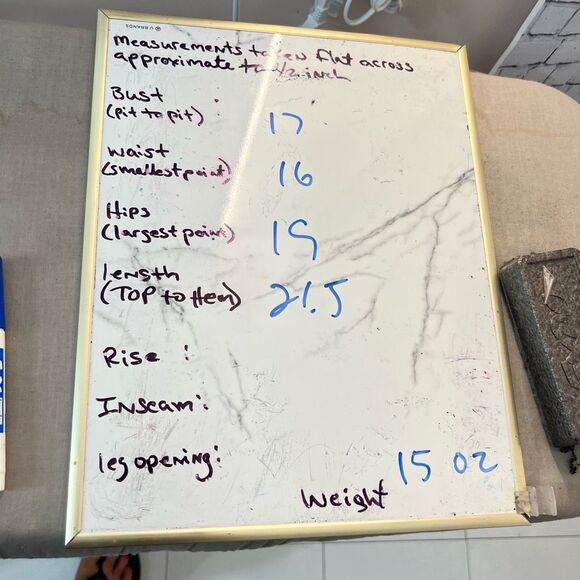 U BRANDS
measurements taken flat across
approximate to 1/2 inch
Bust
(pit to pit) 17
waist
(smallest point) 16
Hips
(largest point) 19
length
(TOP to Hem) 21.5
Rise :
INseam:
leg opening:
15 oz
Weight